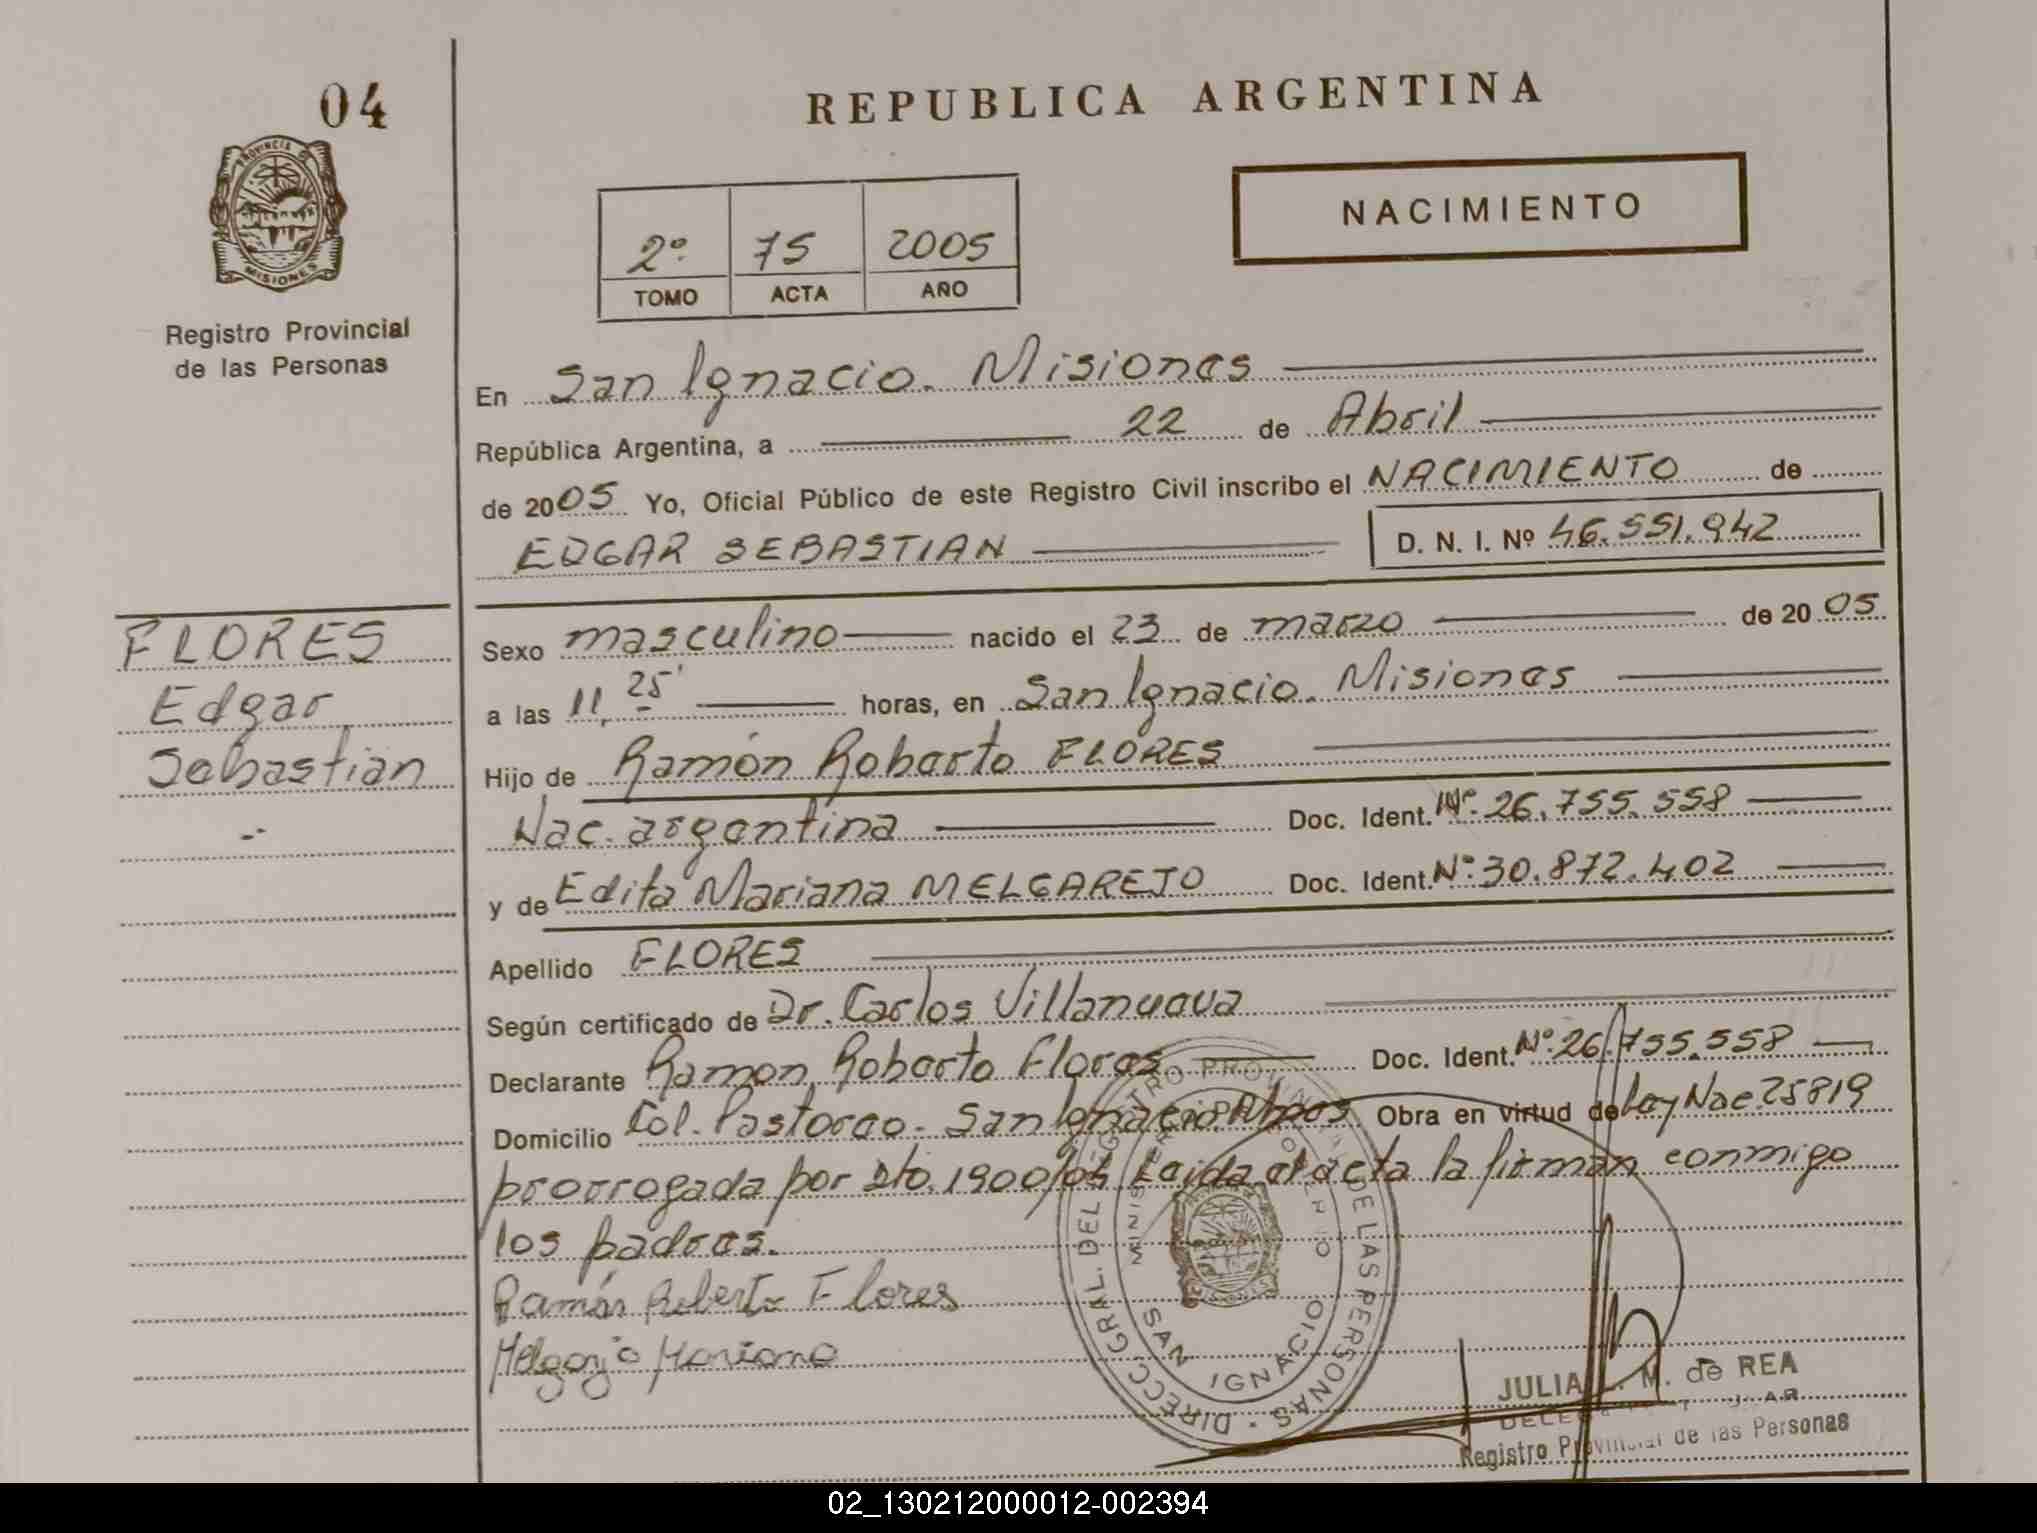 04
REPUBLICA ARGENTINA
PROVINCIA DE
MISIONES
Registro Provincial
de las Personas
NACIMIENTO
2º 75 2005
TOMO ACTA AÑO
En San Ignacio. Misiones
República Argentina, a 22 de Abril
de 2005 Yo, Oficial Público de este Registro Civil inscribo el NACIMIENTO de
EDGAR SEBASTIAN D. N. I. Nº 46.551.942
FLORES
Edgar
Sebastian
Sexo masculino nacido el 23 de marzo de 2005
a las 11,25' horas, en San Ignacio. Misiones
Hijo de Ramón Roberto FLORES
Nac. argentina Doc. Ident. Nº 26.755.558
y de Edita Mariana MELGAREJO Doc. Ident. Nº 30.872.402
Apellido FLORES
Según certificado de Dr. Carlos Villanueva
Declarante Ramon Roberto Flores Doc. Ident. Nº 26.755.558
Domicilio Col. Pastoreo. San Ignacio Mnes. Obra en virtud de Ley Nac. 25819
prorrogada por Dto. 1900/04 Leida el acta la firman conmigo
los padres.
Ramón Roberto Flores
Melgarejo Mariana
DIRECC. GRAL. DEL REGISTRO PROVINCIAL DE LAS PERSONAS
SAN IGNACIO
JULIA M. de REA
Registro Provincial de las Personas
02_130212000012-002394